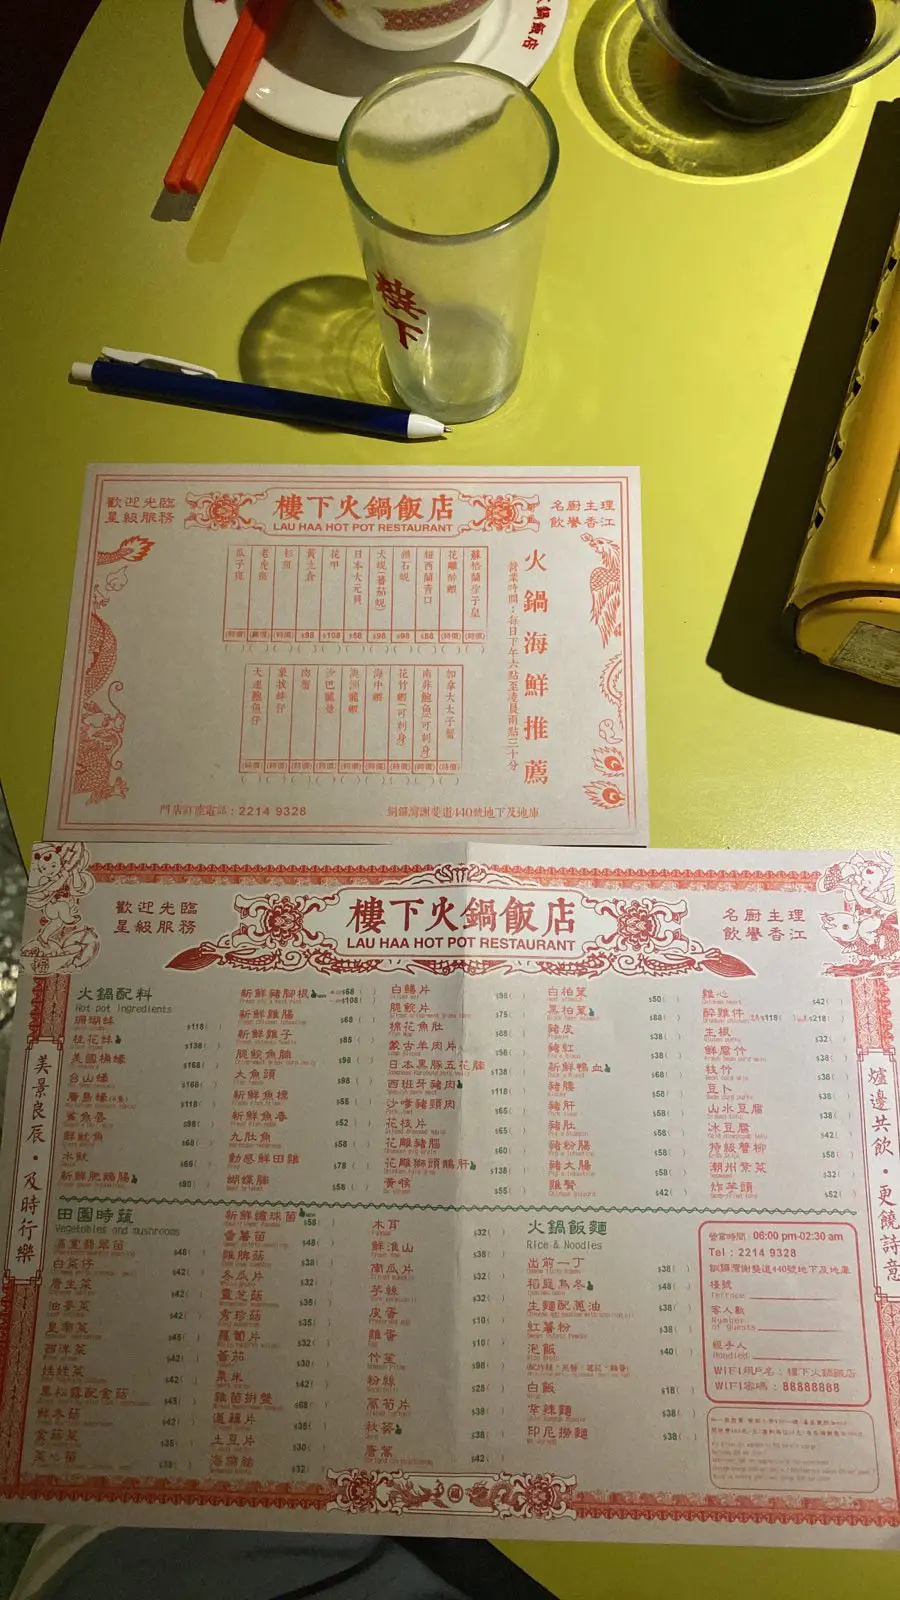 火鍋飯店
樓下
歡迎光臨
星級服務
樓下火鍋飯店
LAU HAA HOT POT RESTAURANT
名廚主理
飲譽香江
火鍋海鮮推薦
營業時間：每日下午六點至凌晨兩點三十分
蘇格蘭蟶子皇 (時價) ( )
花雕醉蝦 (時價) ( )
紐西蘭青口 $88 ( )
$98 ( )
大蜆(蕃茄蜆) $98 ( )
日本大元貝 $68 ( )
花甲 $108 ( )
黃立倉 $98 ( )
杉斑 (時價) ( )
老虎斑 (時價) ( )
瓜子斑 (時價) ( )
加拿大太子蟹 (時價) ( )
南非鮑魚(可刺身) (時價) ( )
花竹蝦(可刺身) (時價) ( )
海中蝦 (時價) ( )
澳洲龍蝦 (時價) ( )
沙巴龍躉 (時價) ( )
肉蟹 (時價) ( )
象拔蚌仔 (時價) ( )
大連鮑魚仔 (時價) ( )
門店訂座電話：2214 9328
銅鑼灣謝斐道440號地下及地庫
歡迎光臨
星級服務
樓下火鍋飯店
LAU HAA HOT POT RESTAURANT
名廚主理
飲譽香江
美景良辰・及時行樂
爐邊共飲・更饒詩意
火鍋配料
Hot pot ingredients
珊瑚蚌 $118( )
桂花蚌 $138( )
美國桶蠔 $168( )
台山蠔 $168( )
廣島蠔 $118( )
鯊魚骨 $98( )
鮮魷魚 $68( )
冰魷 $66( )
新鮮肥鵝腸 $80( )
新鮮豬腳根 $68( )
$108( )
新鮮雞腸 $68( )
新鮮雞子 $85( )
脆鯇魚腩 $98( )
大魚頭 $98( )
新鮮魚標 $55( )
新鮮魚春 $52( )
九肚魚 $58( )
動感鮮田雞 $78( )
蝴蝶腩 $58( )
白鱔片 $98( )
脆鯇片 $75( )
棉花魚肚 $68( )
蒙古羊肉片 $98( )
日本黑豚五花腩
西班牙豬肉
沙嗲豬頸肉
花枝片
花雕豬腦 $60( )
花雕獅頭鵝肝 $138( )
黃喉 $55( )
白柏葉 $50( )
黑柏葉 $58( )
豬皮 $38( )
豬紅 $38( )
新鮮鴨血 $68( )
豬腰 $58( )
豬肝 $58( )
豬肚 $58( )
豬粉腸 $58( )
豬大腸 $58( )
雞腎 $42( )
雞心 $42( )
醉雞件 $118( ) $218( )
生根 $32( )
鮮腐竹 $38( )
枝竹 $38( )
豆卜 $38( )
山水豆腐 $38( )
冰豆腐 $42( )
特級蟹柳 $58( )
潮州紫菜 $42( )
炸芋頭 $52( )
田園時蔬
Vegetables and mushrooms
高室翡翠苗 $48( )
白菜仔 $42( )
唐生菜 $42( )
油麥菜 $42( )
皇帝菜 $45( )
西洋菜 $42( )
娃娃菜 $42( )
黑松露配金菇 $45( )
鮮冬菇 $42( )
金菇菜 $35( )
菜心苗
新鮮繡球菌 $58( )
番薯苗 $48( )
雞脾菇 $38( )
冬瓜片 $32( )
靈芝菇 $38( )
秀珍菇 $35( )
蘿蔔片 $32( )
蕃茄 $30( )
粟米 $42( )
雜菌拼盤 $68( )
蓮藕片 $38( )
土豆片 $30( )
海帶結 $32( )
木耳 $32( )
鮮淮山 $38( )
南瓜片 $32( )
芋絲 $38( )
皮蛋 $10( )
雞蛋 $10( )
竹笙 $58( )
粉絲 $28( )
萵筍片 $38( )
秋葵 $38( )
唐蒿 $42( )
火鍋飯麵
Rice & Noodles
出前一丁 $38( )
稻庭烏冬 $48( )
生麵配蔥油 $38( )
紅薯粉 $38( )
泡飯 $40( )
白飯 $18( )
辛辣麵 $38( )
印尼撈麵 $38( )
營業時間 06:00 pm-02:30 am
Tel : 2214 9328
銅鑼灣謝斐道440號地下及地庫
檯號
Terrace
客人數
Number
of guests
經手人
Handled
WIFI用戶名：樓下火鍋飯店
WIFI密碼：88888888